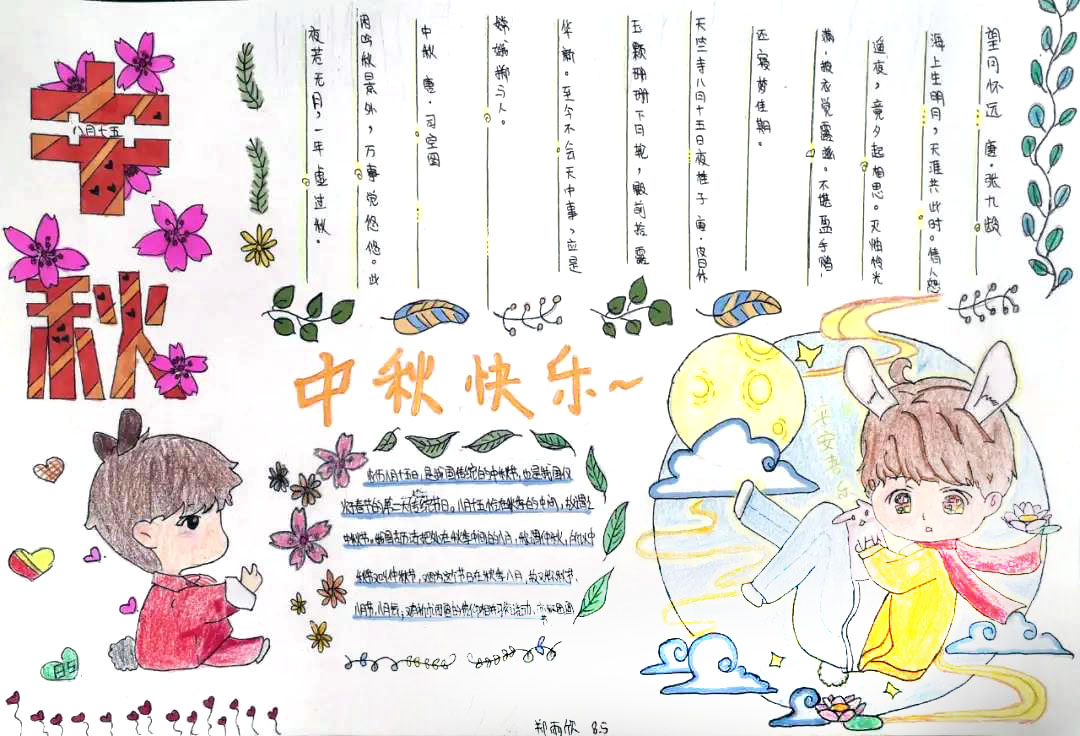 中秋
八月十五
望月怀远 唐·张九龄
海上生明月，天涯共此时。情人怨
遥夜，竟夕起相思。灭烛怜光
满，披衣觉露滋。不堪盈手赠
还寝梦佳期。
天竺寺八月十五日夜桂子 唐·皮日休
玉颗珊珊下月轮，殿前拾露
华新。至今不会天中事，应是
嫦娥掷与人。
中秋 唐·司空图
闲吟秋景外，万事觉悠悠。此
夜若无月，一年虚过秋。
中秋快乐~
农历八月十五日，是我国传统的中秋节，也是我国仅
次于春节的第二大传统节日，八月十五恰在秋季的中间，故谓之
中秋节，我国古历法把处在秋季中间的八月，称谓仲秋，所以中
秋节又叫仲秋节，因为这个节日在秋季八月，故又称秋节，
八月节，八月会，
平安喜乐
85
郑雨欣 85